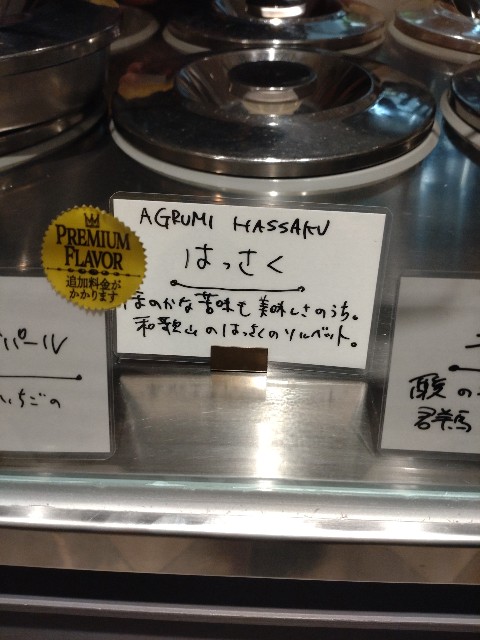 AGRUMI HASSAKU
はっさく
ほのかな苦味も美味しさのうち。
和歌山のはっさくのソルベット。
PREMIUM
FLAVOR
追加料金が
かかります
パール
いちごの
酸の
群馬